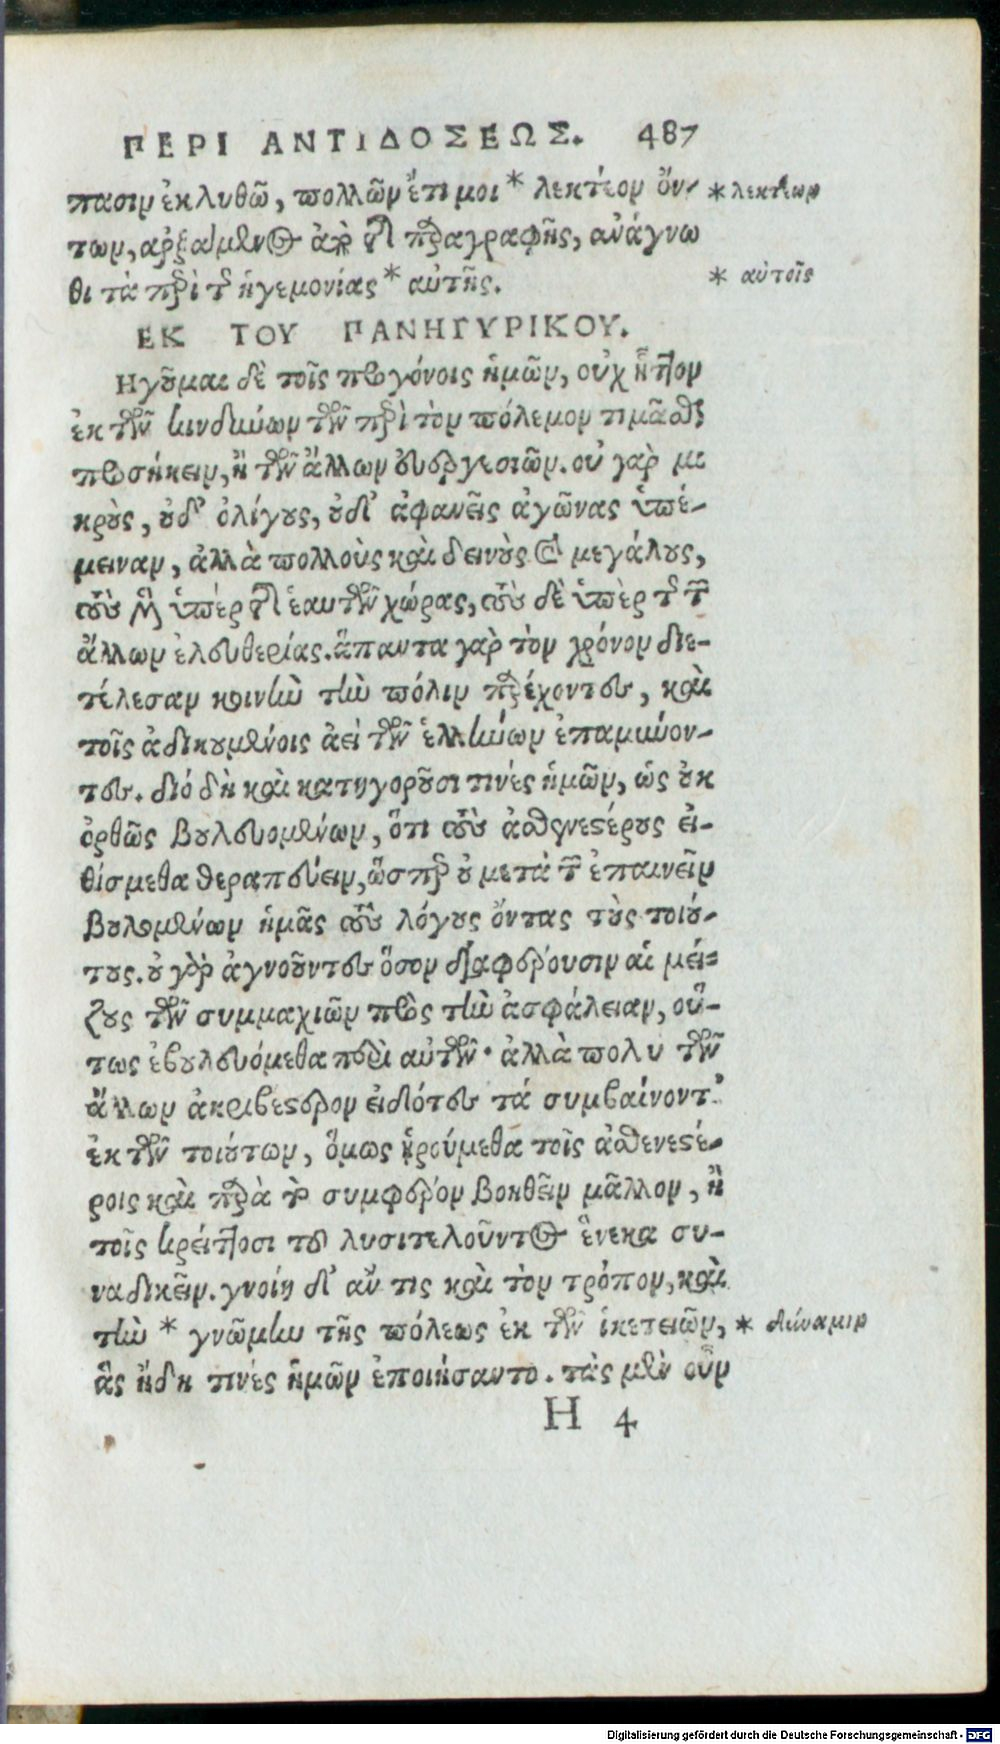 ΠΕΡΙ ΑΝΤΙΔΟΣΕΩΣ. 487
πασιν ἐκλυθῶ, πολλῶν ἔτι μοι * λεκτέον ὄν- * λεκτέων
των, ἀρξάμενος ἀπὸ τῆς παραγραφῆς, ἀνάγνω
θι τὰ περὶ τῆς ἡγεμονίας * αὐτῆς. * αὐτοῖς
ΕΚ ΤΟΥ ΠΑΝΗΓΥΡΙΚΟΥ.
Ηγοῦμαι δὲ τοῖς προγόνοις ἡμῶν, οὐχ ἧττον
ἐκ τῶν κινδύνων τῶν περὶ τὸν πόλεμον τιμᾶσθαι
προσήκειν, ἢ τῶν ἄλλων εὐεργεσιῶν. οὐ γὰρ μι
κροὺς, οὐδ' ὀλίγους, οὐδ' ἀφανεῖς ἀγῶνας ὑπέ-
μειναν, ἀλλὰ πολλοὺς καὶ δεινοὺς καὶ μεγάλους,
τοὺς μὲν ὑπὲρ τῆς ἑαυτῶν χώρας, τοὺς δὲ ὑπὲρ τῆς τῶν
ἄλλων ἐλευθερίας. ἅπαντα γὰρ τὸν χρόνον διε-
τέλεσαν κοινὴν τὴν πόλιν παρέχοντες, καὶ
τοῖς ἀδικουμένοις ἀεὶ τῶν ἑλλήνων ἐπαμύνον-
τες. διό δὴ καὶ κατηγοροῦσι τινές ἡμῶν, ὡς οὐκ
ὀρθῶς βουλευομένων, ὅτι τοὺς ἀσθενεστέρους εἰ-
θίσμεθα θεραπεύειν, ὥσπερ οὐ μετὰ τῶν ἐπαινεῖν
βουλομένων ἡμᾶς τοὺς λόγους ὄντας τοὺς τοιού-
τους. οὐ γὰρ ἀγνοοῦντες ὅσον διαφέρουσιν αἱ μεί-
ζους τῶν συμμαχιῶν πρὸς τὴν ἀσφάλειαν, οὕ-
τως ἐβουλευόμεθα περὶ αὐτῶν· ἀλλὰ πολὺ τῶν
ἄλλων ἀκριβέστερον εἰδότες τά συμβαίνοντ'
ἐκ τῶν τοιούτων, ὅμως ᾑρούμεθα τοῖς ἀσθενεστέ-
ροις καὶ παρὰ τὸ συμφέρον βοηθεῖν μᾶλλον, ἢ
τοῖς κρείττοσι τοῦ λυσιτελοῦντος ἕνεκα συ-
ναδικεῖν. γνοίη δ' ἄν τις καὶ τὸν τρόπον, καὶ
τὴν * γνώμην τῆς πόλεως ἐκ τῶν ἱκετειῶν, * δύναμιν
ἃς ἤδη τινές ἡμῶν ἐποιήσαντο. τὰς μὲν οὖν
H 4
Digitalisierung gefördert durch die Deutsche Forschungsgemeinschaft - DFG